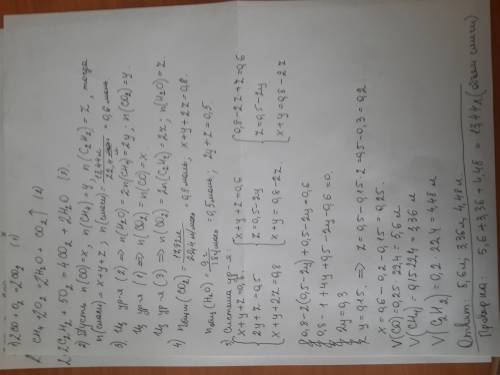 1) 2CO + O₂ = 2CO₂ (1)
CH₄ + 2O₂ = 2H₂O + CO₂↑ (2)
2C₂H₂ + 5O₂ = 4CO₂ + 2H₂O (3).
2) Пусть n(CO) = x, n(CH₄) = y, n(C₂H₂) = z, тогда
n(смеси) = x+y+z; n(смеси) = 13,44л / 22,4 = 0,6 моль
3) Из ур-я (2) => n(H₂O) = 2n(CH₄) = 2y; n(CO₂) = y.
Из ур-я (1) => n(CO₂) = n(CO) = x.
Из ур-я (3) => n(CO₂) = 2n(C₂H₂) = 2z; n(H₂O) = z
4) nобщ(CO₂) = 17,92л / 22,4 л/моль = 0,8 моль; x+y+2z = 0,8.
nобщ(H₂O) = 9г / 18 г/моль = 0,5 моль; 2y+z = 0,5
Система ур-я:
x+y+z = 0,6
2y+z = 0,5
x+y+2z = 0,8
x+y+z = 0,6
z = 0,5-2y
x+y = 0,8-2z
0,8-2z+z = 0,6
z = 0,5-2y
x+y = 0,8-2z
0,8-2(0,5-2y)+0,5-2y = 0,6
0,8-1+4y+0,5-2y-0,6 = 0
2y = 0,3
y = 0,15. => z = 0,5-0,15·2 = 0,5-0,3 = 0,2.
x = 0,6-0,2-0,15 = 0,25.
V(CO) = 0,25·22,4 = 5,6 л
V(CH₄) = 0,15·22,4 = 3,36 л
V(C₂H₂) = 0,2·22,4 = 4,48 л
Ответ: 5,6л, 3,36л, 4,48л.
Проверка: 5,6+3,36+4,48 = 13,44л (объём смеси)